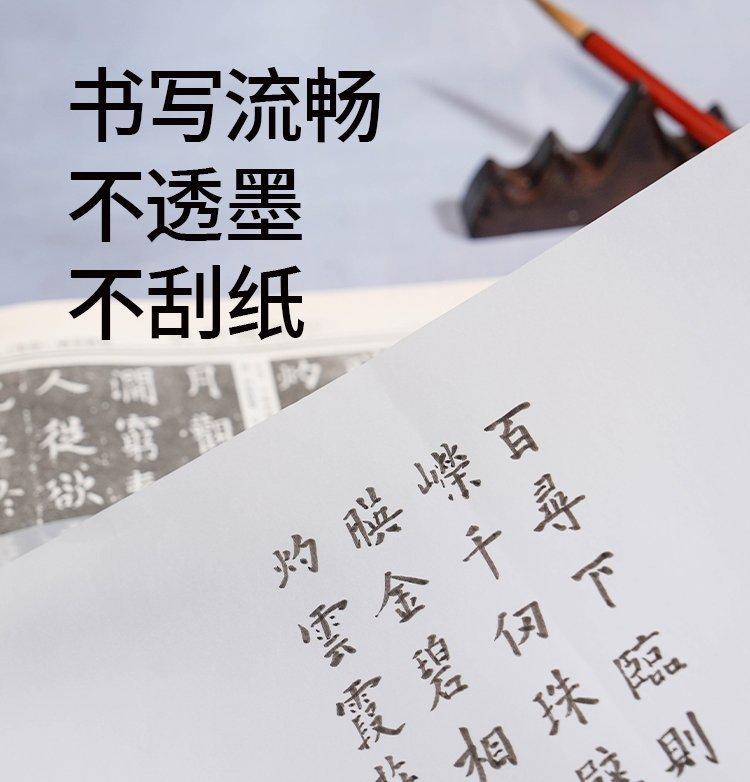 书写流畅
不透墨
不刮纸
百尋下臨則
嶸千仞珠壁
金碧相
灼雲霞
月觀
澗窮
人從欲
灼